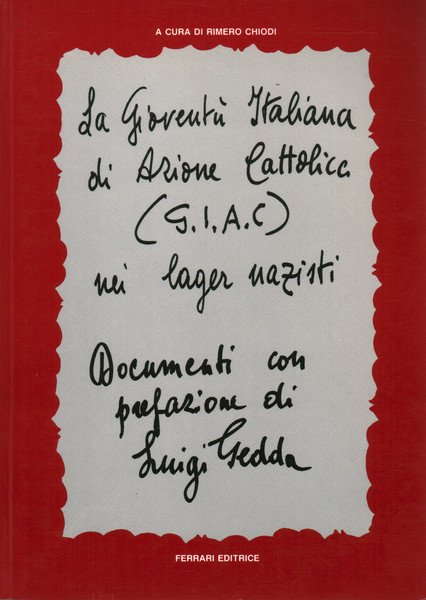 A CURA DI RIMERO CHIODI
La Gioventù Italiana
di Azione Cattolica
(G.I.A.C)
nei lager nazisti
Documenti con
prefazione di
Luigi Gedda
FERRARI EDITRICE